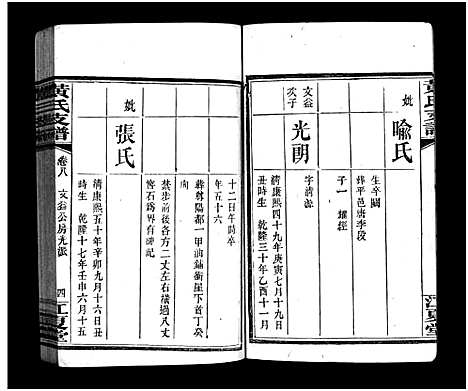 黃氏支譜
妣 喻氏
生卒闕
葬平邑唐李段
子一 耀經
文益次子 光朗
字清源
清康熙四十九年庚寅七月十九日
丑時生 乾隆三十年乙酉十一月
江夏堂
黃氏支譜
卷八 文益公房光派
四
江夏堂
十二日午時卒
年五十六
葬尊陽都一甲油鋪街屋下首丁癸
禁步前後各方二丈左右橫過八丈
窖石錫界有碑記
妣 張氏
清康熙五十年辛卯九月十六日丑
時生 乾隆十七年壬申六月十五